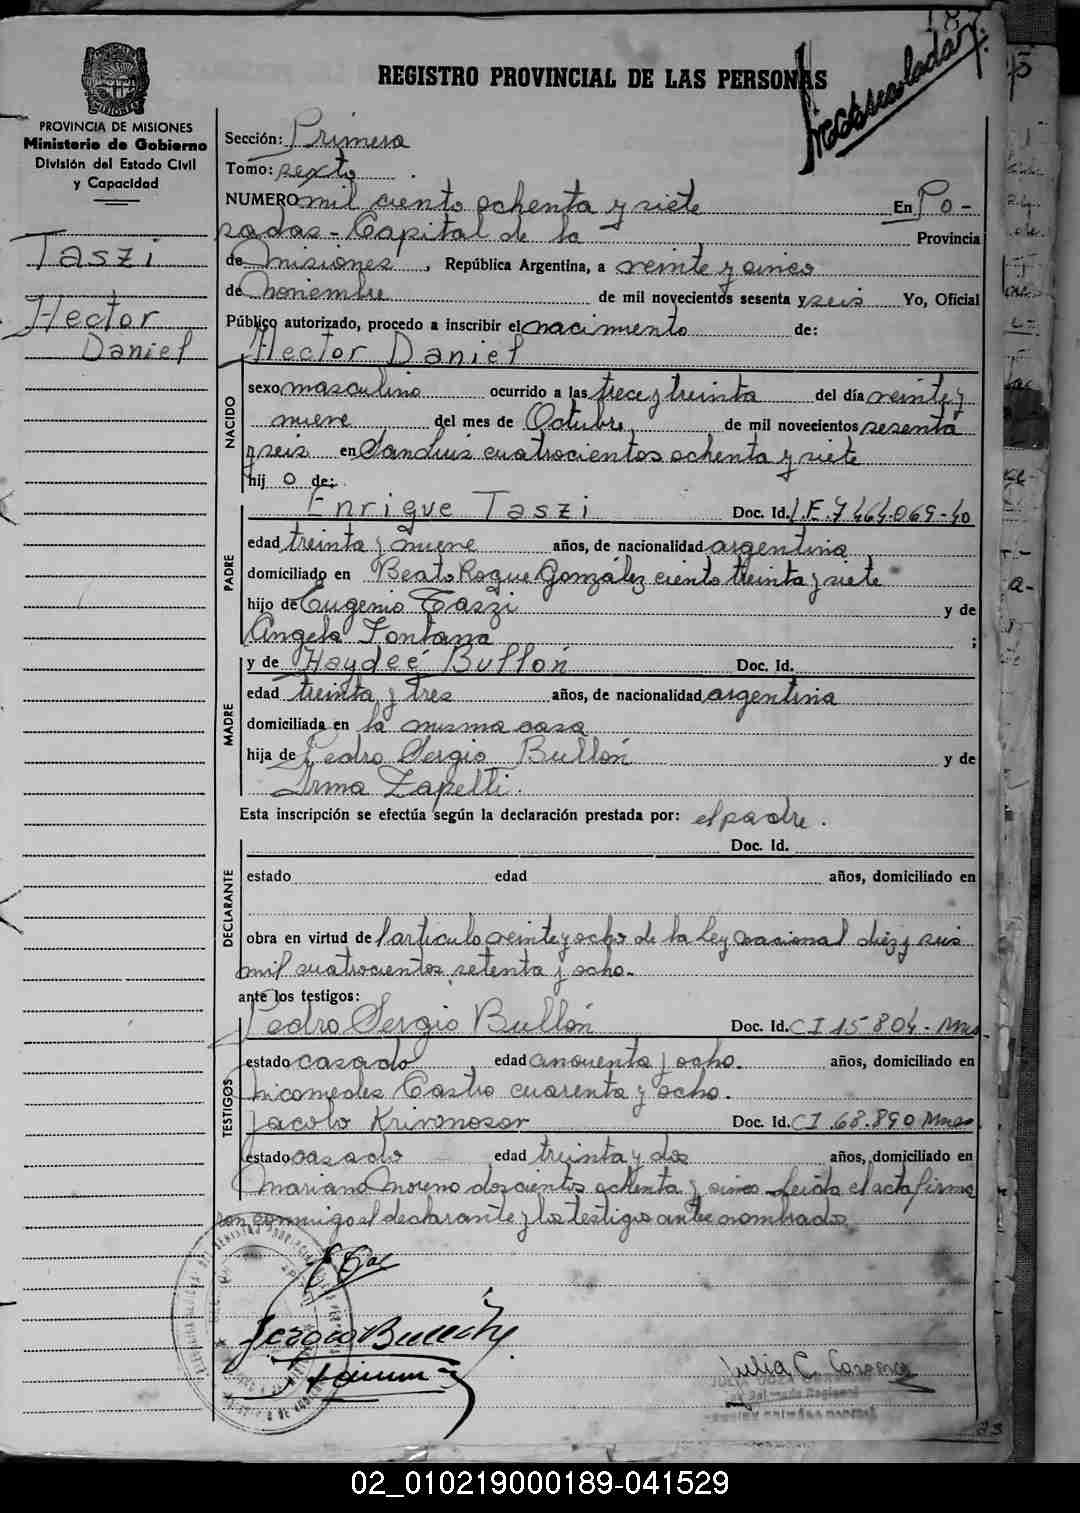 REGISTRO PROVINCIAL DE LAS PERSONAS
PROVINCIA DE MISIONES
Ministerio de Gobierno
División del Estado Civil
y Capacidad
Taszi
Hector
Daniel
Sección: Primera
Tomo: sexto
NUMERO mil ciento ochenta y siete En Po-
sadas - Capital de la Provincia
de Misiones, República Argentina, a veinte y cinco
de Noviembre de mil novecientos sesenta y seis Yo, Oficial
Público autorizado, procedo a inscribir el nacimiento de:
Hector Daniel
NACIDO
sexo masculino ocurrido a las trece y treinta del día veinte y
nueve del mes de Octubre de mil novecientos sesenta
y seis en San Luis cuatrocientos ochenta y siete
hij o de:
PADRE
Enrique Taszi Doc. Id. L.E. 7464.069-40
edad treinta y nueve años, de nacionalidad argentina
domiciliado en Beato Roque González ciento treinta y siete
hijo de Eugenio Taszi y de
Angela Fontana ;
MADRE
y de Haydeé Bullón Doc. Id.
edad treinta y tres años, de nacionalidad argentina
domiciliada en la misma casa
hija de Pedro Sergio Bullón y de
Irma Zapelli.
Esta inscripción se efectúa según la declaración prestada por: el padre.
DECLARANTE
Doc. Id.
estado edad años, domiciliado en
obra en virtud de l articulo veinte y ocho de la ley nacional diez y seis
mil cuatrocientos setenta y ocho.
ante los testigos:
TESTIGOS
Pedro Sergio Bullón Doc. Id. CI 15804 - Mnes
estado casado edad cincuenta y ocho. años, domiciliado en
Nicomedes Castro cuarenta y ocho.
Jacobo Doc. Id. CI .68.890 Mnes
estado casado edad treinta y dos años, domiciliado en
Mariano Moreno doscientos ochenta y cinco. Leida el acta firma
ron conmigo el declarante y los testigos antes nombrados
Julia C.
02_010219000189-041529